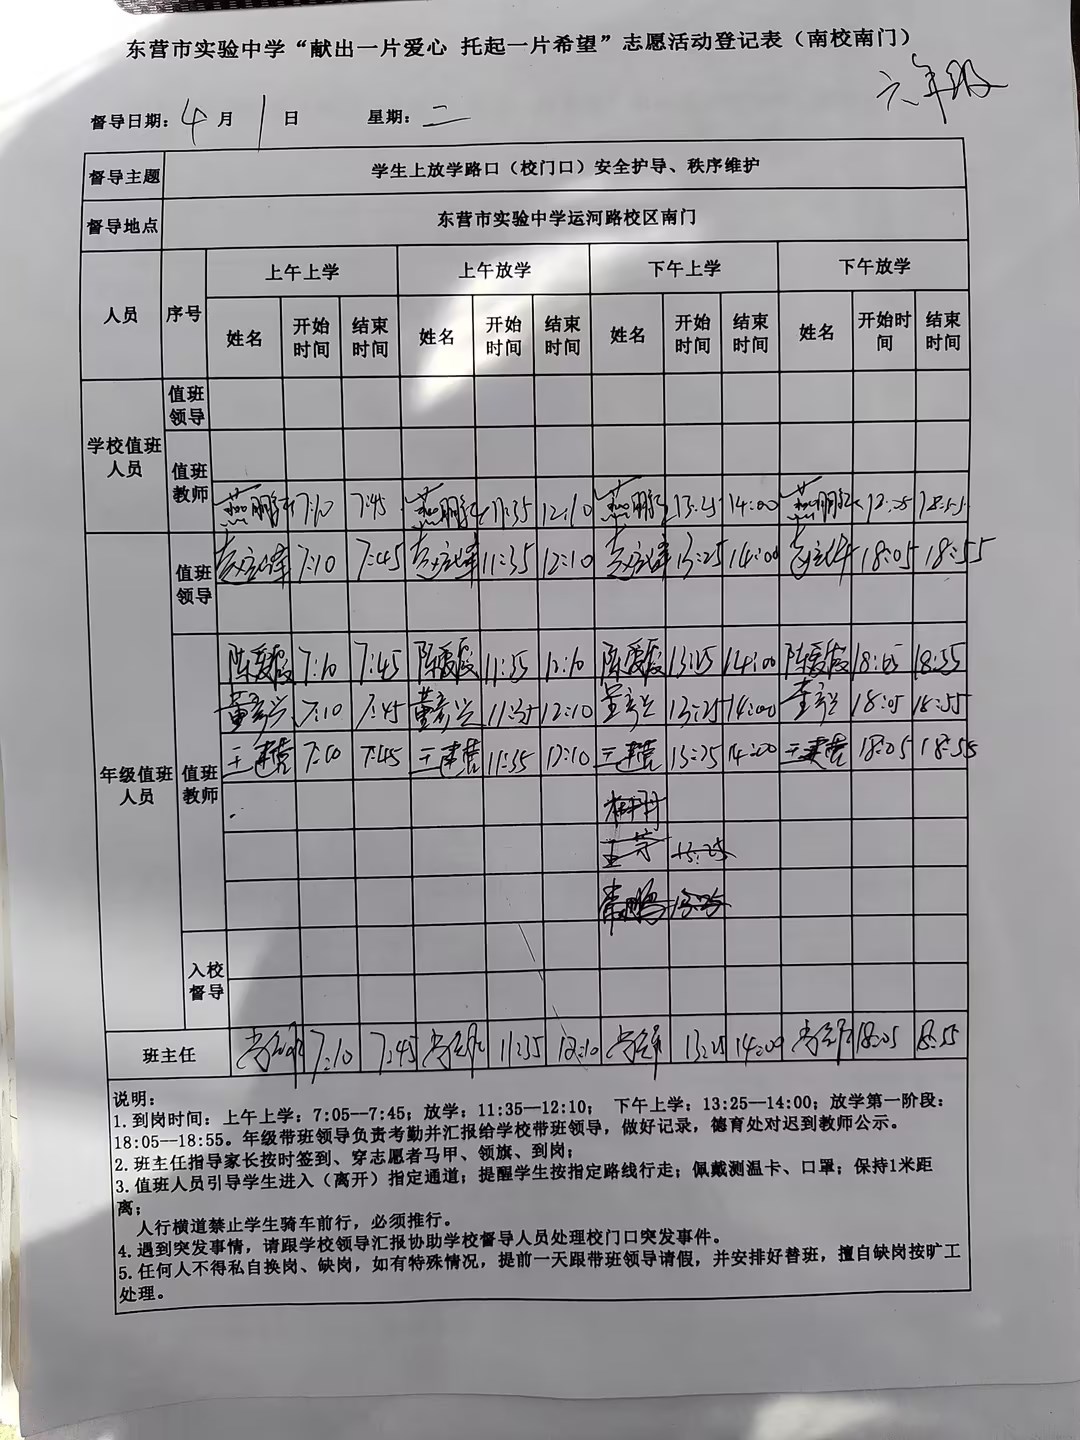 东营市实验中学“献出一片爱心 托起一片希望”志愿活动登记表（南校南门）
六年级
督导日期：4月1日 星期：二
督导主题 学生上放学路口（校门口）安全护导、秩序维护
督导地点 东营市实验中学运河路校区南门
人员 序号 上午上学 上午放学 下午上学 下午放学
姓名 开始时间 结束时间 姓名 开始时间 结束时间 姓名 开始时间 结束时间 姓名 开始时间 结束时间
学校值班人员 值班领导
值班教师
7:10 7:45 11:35 12:10 13:25 14:00 18:55
年级值班人员 值班领导 7:10 7:45 11:35 12:10 13:25 14:00 18:05 18:55
值班教师 陈爱霞 7:10 7:45 陈爱霞 11:35 12:10 陈爱霞 13:25 14:00 陈爱霞 18:05 18:55
董彦兰 7:10 7:45 董彦兰 11:35 12:10 董彦兰 13:25 14:00 董彦兰 18:05 18:55
王建营 7:10 7:45 王建营 11:35 12:10 王建营 13:25 14:00 王建营 18:05 18:55
13:25
13:25
入校督导
班主任 7:10 7:45 11:35 12:10 13:25 14:00 18:05 18:55
说明：
1.到岗时间：上午上学：7:05--7:45；放学：11:35—12:10； 下午上学：13:25—14:00；放学第一阶段：
18:05--18:55。年级带班领导负责考勤并汇报给学校带班领导，做好记录，德育处对迟到教师公示。
2.班主任指导家长按时签到、穿志愿者马甲、领旗、到岗；
3.值班人员引导学生进入（离开）指定通道；提醒学生按指定路线行走；佩戴测温卡、口罩；保持1米距
离；
人行横道禁止学生骑车前行，必须推行。
4.遇到突发事情，请跟学校领导汇报协助学校督导人员处理校门口突发事件。
5.任何人不得私自换岗、缺岗，如有特殊情况，提前一天跟带班领导请假，并安排好替班，擅自缺岗按旷工
处理。